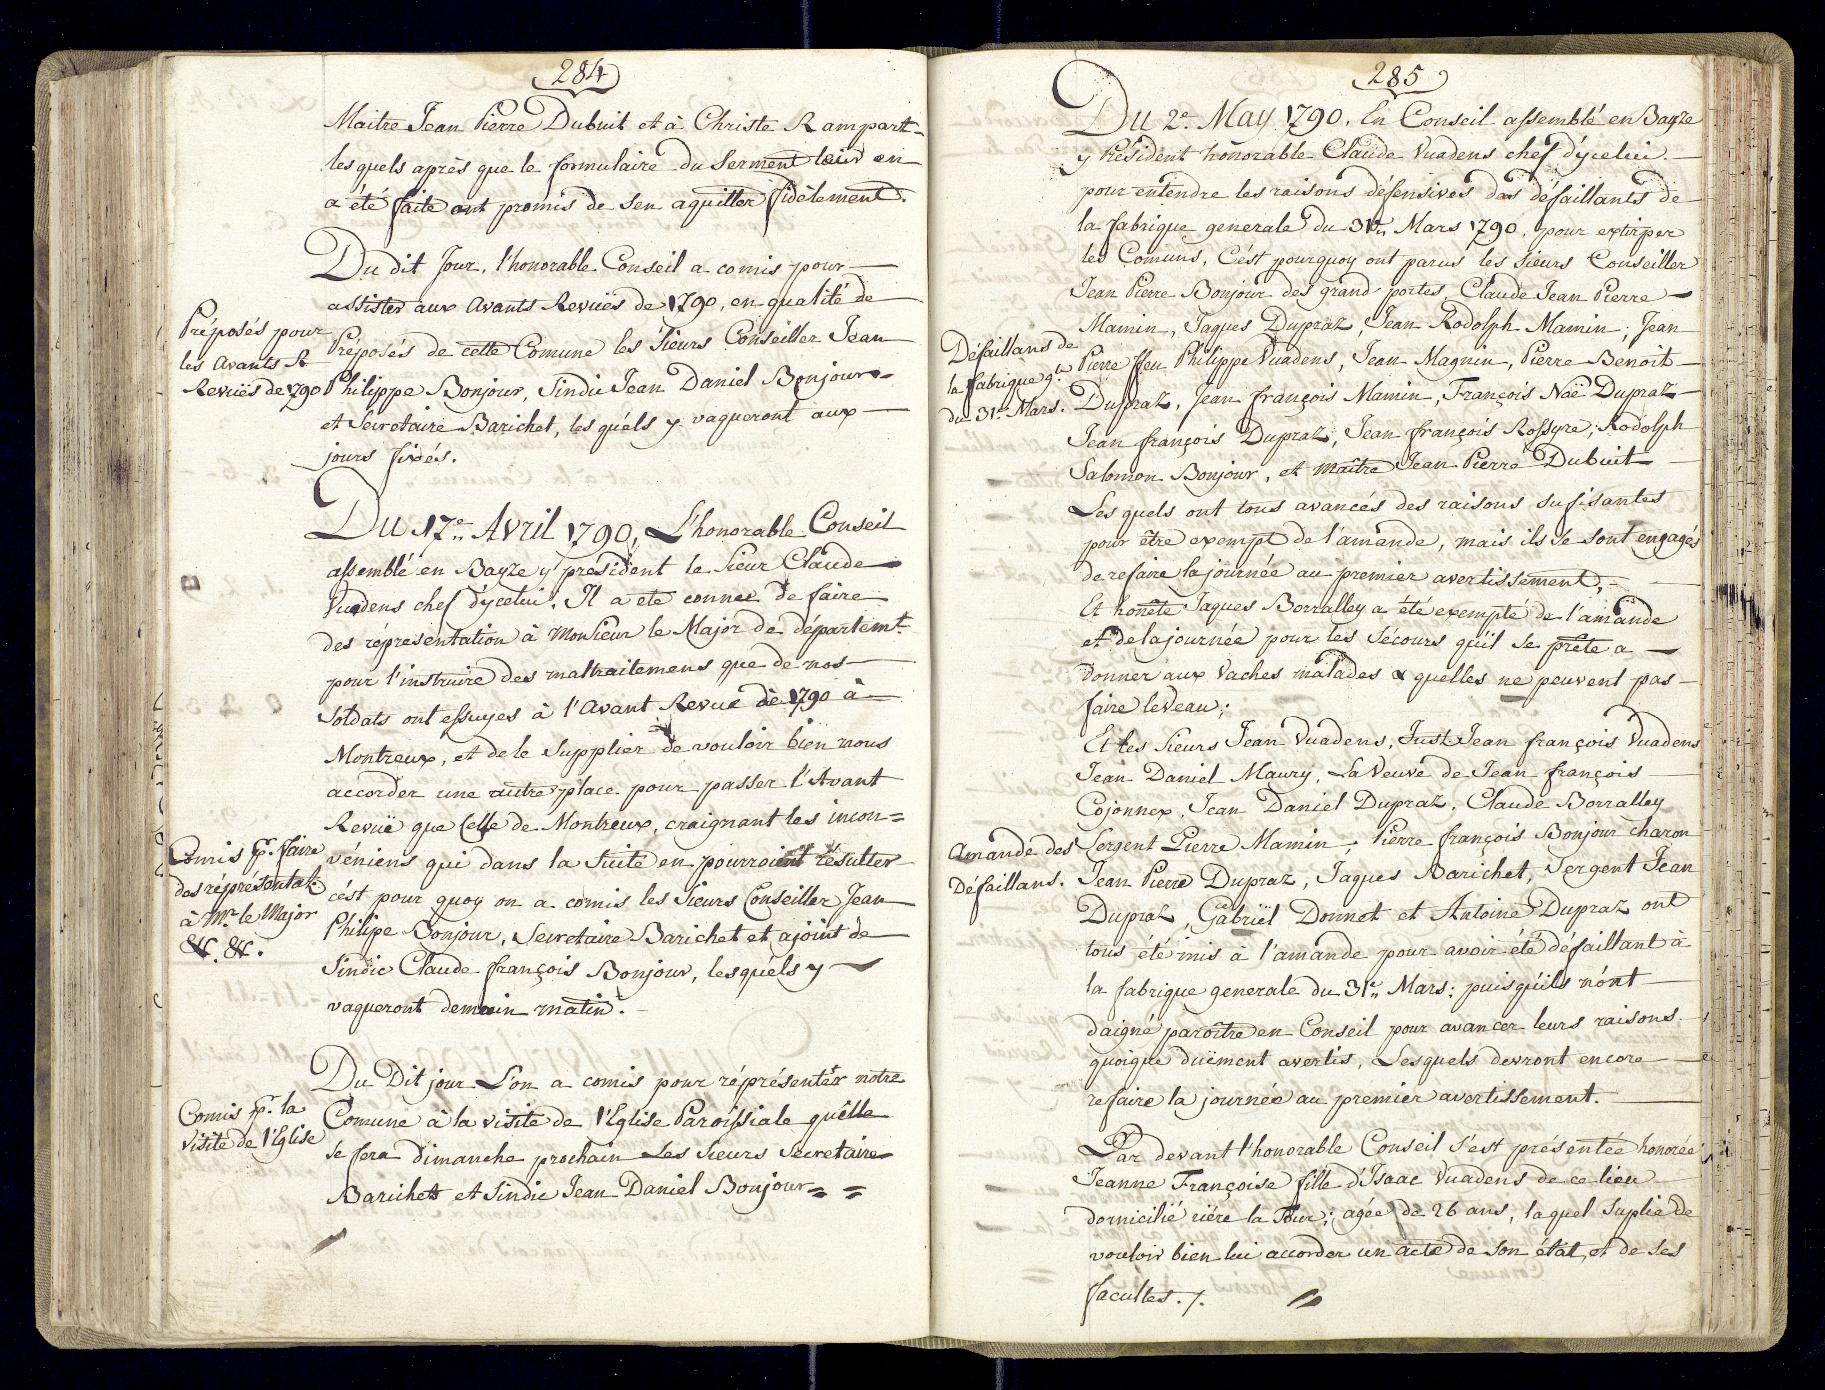 284
Maitre Jean Pierre Dubuit et à Christe Rampart=
lesquels après que le formulaire du Serment leur en
a été faite ont promis de sen aquitter fidèlement.
Du dit Jour, l'honorable Conseil a comis pour
assister aux Avants Revuës de 1790, en qualité de
Préposés pour
les Avants R
Revuës de 1790
Préposés de cette Comune les Sieurs Conseiller Jean
Philippe Bonjour, Sindic Jean Daniel Bonjour
et Secretaire Barichet, lesquéls y vaqueront aux
jours fixés.
Du 17e. Avril 1790, L'honorable Conseil
assemblé en Bayze y president le Sieur Claude
Vuadens chef dycelui. Il a été connu de faire
des réprésentation à Monsieur le Major de départemt.
pour l'instruire des maltraitemens que de nos
Soldats ont essuyes à l'Avant Revuë de 1790 à
Montreux, et de le Supplier de vouloir bien nous
accorder une autre place pour passer l'Avant
Revuë que Celle de Montreux, craignant les incon=
Comis pr. faire
des réprésentat.
à Mr. le Major
&c. &c.
véniens qui dans la Suite en pourroient résulter
c'est pour quoy on a comis les Sieurs Conseiller Jean
Philipe Bonjour, Secretaire Barichet et ajoint de
Sindic Claude françois Bonjour, lesquéls y
vaqueront demain matin.
Du Dit jour L'on a comis pour réprésenter notre
Comis pr. la
Visite de l'Eglise
Comune à la visite de l'Eglise Paroissiale quélle
se fera dimanche prochain Les Sieurs Secretaire
Barichet et Sindic Jean Daniel Bonjour
285
Du 2e. May 1790. En Conseil assemblé en Bayze
y Président honorable Claude Vuadens chef dÿcelui
pour entendre les raisons défensives des défaillants de
la fabrique generale du 31e. Mars 1790, pour extirper
les Comuns, C'ést pourquoy ont parus les Sieurs Conseiller
Jean Pierre Bonjour des grand portes Claude Jean Pierre
Mamin, Jaques Dupraz, Jean Rodolph Mamin, Jean
Défaillans de
la fabrique gle.
du 31e. Mars.
Pierre ffeu Philippe Vuadens, Jean Magnin, Pierre Benoit
Dupraz, Jean françois Mamin, François Noë Dupraz
Jean françois Dupraz, Jean françois Rossyre, Rodolph
Salomon Bonjour, et maître Jean Pierre Dubuit
Les quels ont tous avancés des raisons sufisantes
pour être exempt de l'amande, mais ils se sont engagés
de refaire la journée au premier avertissement;
Et honête Jaques Borralley a été exempté de l'amande
et de la journée pour les Sécours qu'il se prête a
donner aux Vaches malades & quelles ne peuvent pas
faire leveau;
Et les Sieurs Jean Vuadens, Just Jean françois Vuadens
Jean Daniel Maury, La Veuve de Jean françois
Cojonnex, Jean Daniel Dupraz, Claude Borralley
Amande des
Défaillans.
Sergent Pierre Mamin, Pierre françois Bonjour charon
Jean Pierre Dupraz, Jaques Barichet, Sergent Jean
Dupraz, Gabriël Donnet et Antoine Dupraz ont
tous été mis à l'amande pour avoir été défaillant à
la fabrique generale du 31e. Mars; puisquéils n'ont
daigné paroître en Conseil pour avancer leurs raisons
quoique duëment avertis, Lesquels devront encore
refaire la journée au premier avertissement.
Par devant l'honorable Conseil s'est présentée honorée
Jeanne Françoise fille d'Isaac Vuadens de ce lieu
domicilié riére la Tour; agée de 26 ans, laquel Suplie de
vouloir bien lui accorder un acte de son état, et de ses
facultes. /.